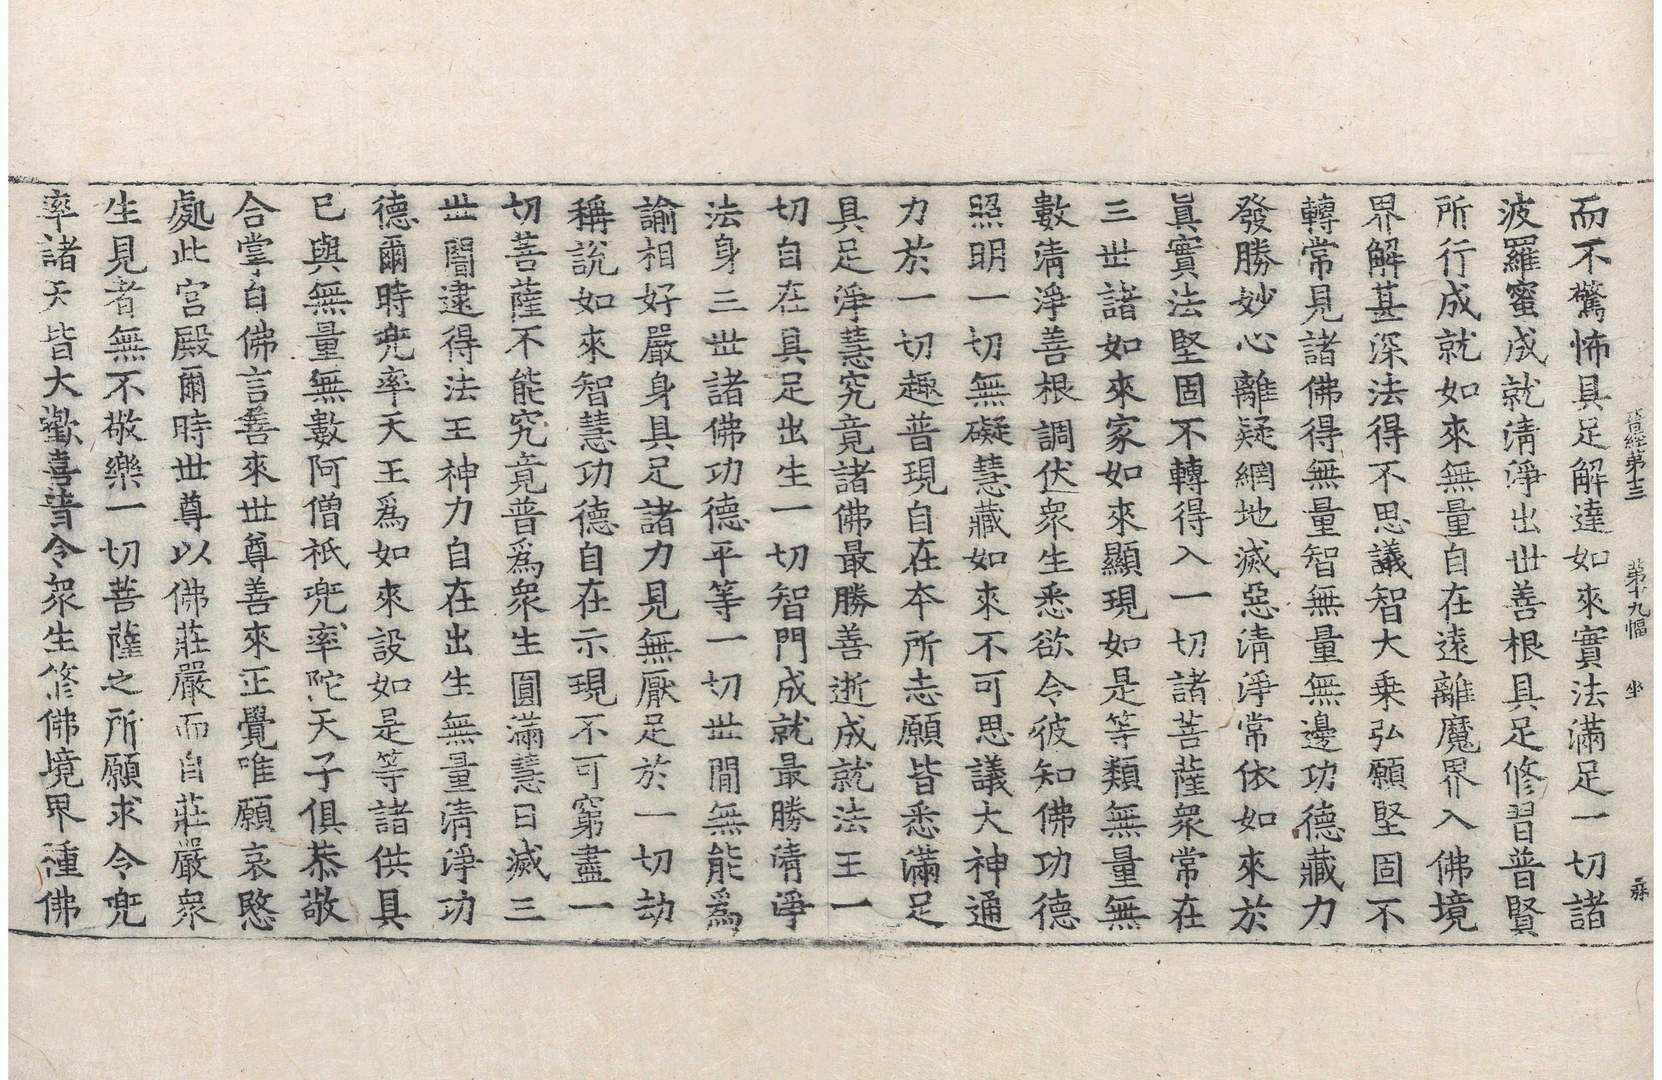 晉經第十三 第十九幅 坐
而不驚怖具足解達如來實法滿足一切諸
波羅蜜成就清淨出世善根具足修習普賢
所行成就如來無量自在遠離魔界入佛境
界解甚深法得不思議智大乘弘願堅固不
轉常見諸佛得無量智無量無邊功德藏力
發勝妙心離疑網地滅惡清淨常依如來於
眞實法堅固不轉得入一切諸菩薩衆常在
三世諸如來家如來顯現如是等類無量無
數清淨善根調伏衆生悉欲令彼知佛功德
照明一切無礙慧藏如來不可思議大神通
力於一切趣普現自在本所志願皆悉滿足
具足淨慧究竟諸佛最勝善逝成就法王一
切自在具足出生一切智門成就最勝清淨
法身三世諸佛功德平等一切世間無能爲
諭相好嚴身具足諸力見無厭足於一切劫
稱說如來智慧功德自在示現不可窮盡一
切菩薩不能究竟普爲衆生圓滿慧日滅三
世闇逮得法王神力自在出生無量清淨功
德爾時兜率天王爲如來設如是等諸供具
已與無量無數阿僧祇兜率陀天子俱恭敬
合掌白佛言善來世尊善來正覺唯願哀愍
處此宮殿爾時世尊以佛莊嚴而自莊嚴衆
生見者無不敬樂一切菩薩之所願求令兜
率諸天皆大歡喜普令衆生修佛境界種佛